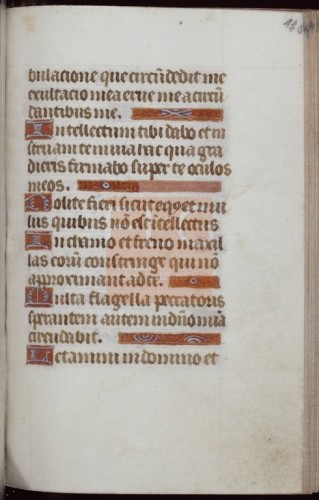 bulacione que circūdedit me
exultacio mea erue me a circū
dantibus me.
Intellectum tibi dabo et in
struam te in uia hac qua gra
dieris firmabo super te oculos
meos.
Nolite fieri sicut equ et mu
lus quibus nō est ītellectus
In chamo et freno maxil
las eorū constringe qui nō
approximant ad te.
Multa flagella peccatoris
sperantem autem in dño mīa
circūdabit.
Letamini in domino et